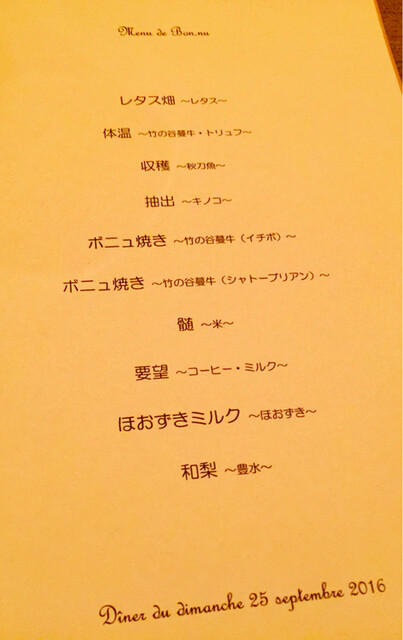 Menu de Bon.nu
レタス畑 ～レタス～
体温 ～竹の谷蔓牛・トリュフ～
収穫 ～秋刀魚～
抽出 ～キノコ～
ボニュ焼き ～竹の谷蔓牛（イチボ）～
ボニュ焼き ～竹の谷蔓牛（シャトーブリアン）～
髄 ～米～
要望 ～コーヒー・ミルク～
ほおずきミルク ～ほおずき～
和梨 ～豊水～
Dîner du dimanche 25 septembre 2016